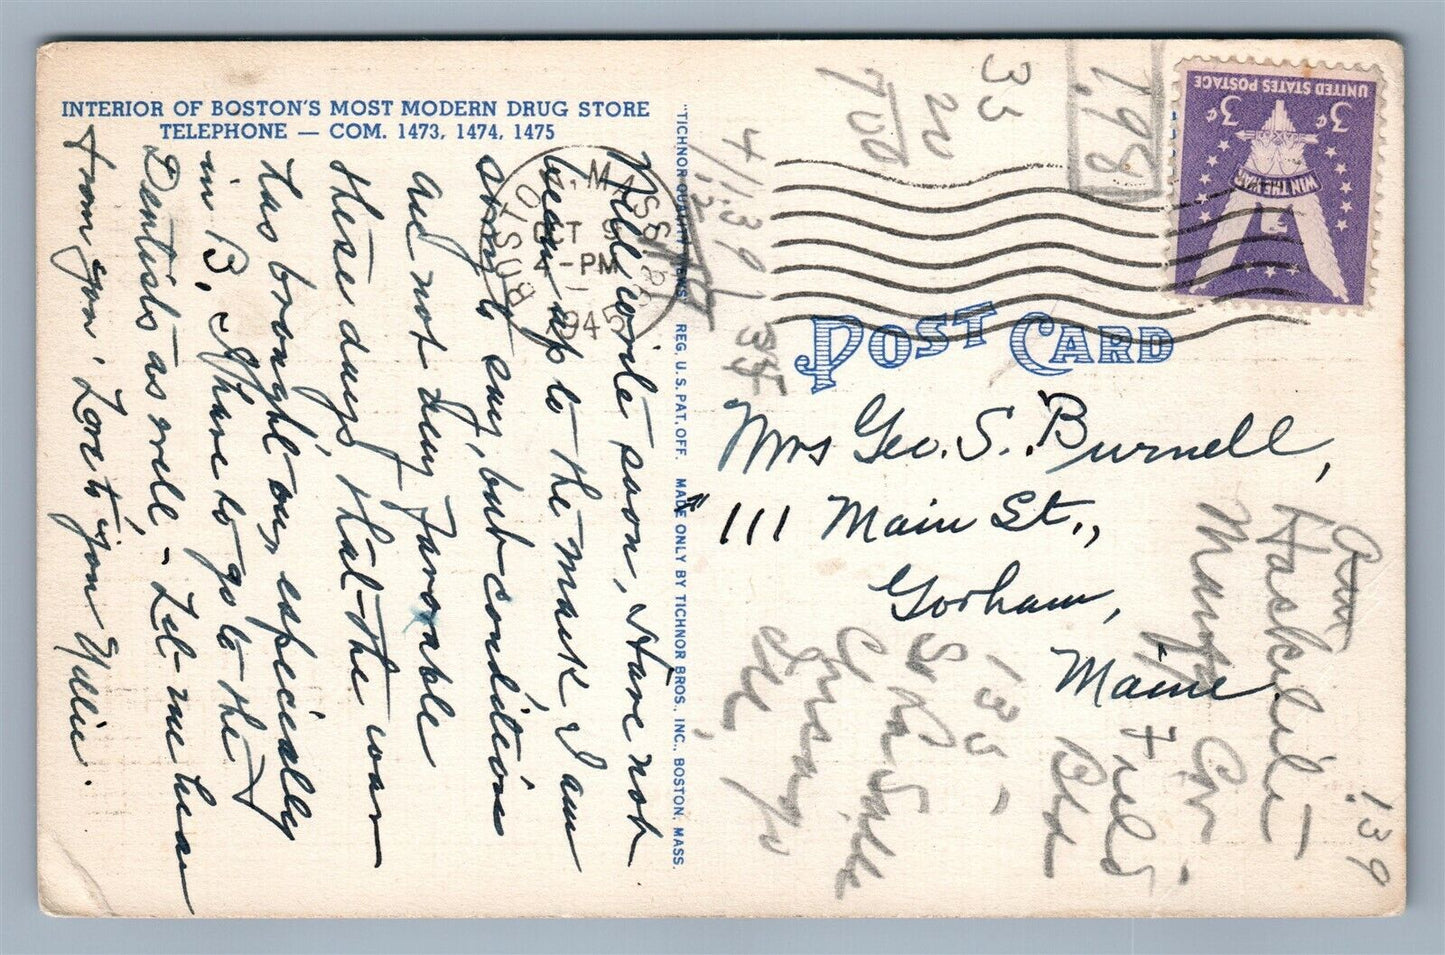 INTERIOR OF BOSTON'S MOST MODERN DRUG STORE
TELEPHONE — COM. 1473, 1474, 1475
Will write soon, Have not
been up to the mark I am
sorry to say, but conditions
are not very favorable
these days, that the war
has brought on, especially
in B, I have to go to the
Dentists as well, - Let me hear
from you. Love to you Millie.
"TICHNOR QUALITY VIEWS" REG. U.S. PAT. OFF. MADE ONLY BY TICHNOR BROS., INC., BOSTON, MASS.
BOSTON, MASS.
OCT 9
4-PM
1945
UNITED STATES POSTAGE
3¢ 3¢
WIN THE WAR
POST CARD
Mrs Geo. S. Burnell,
111 Main St.,
Gorham,
Maine
35
20
700
1.98
4/1391
35
1.39
Manf
Field
Bld
135
So La Salle
Chicago
Ill